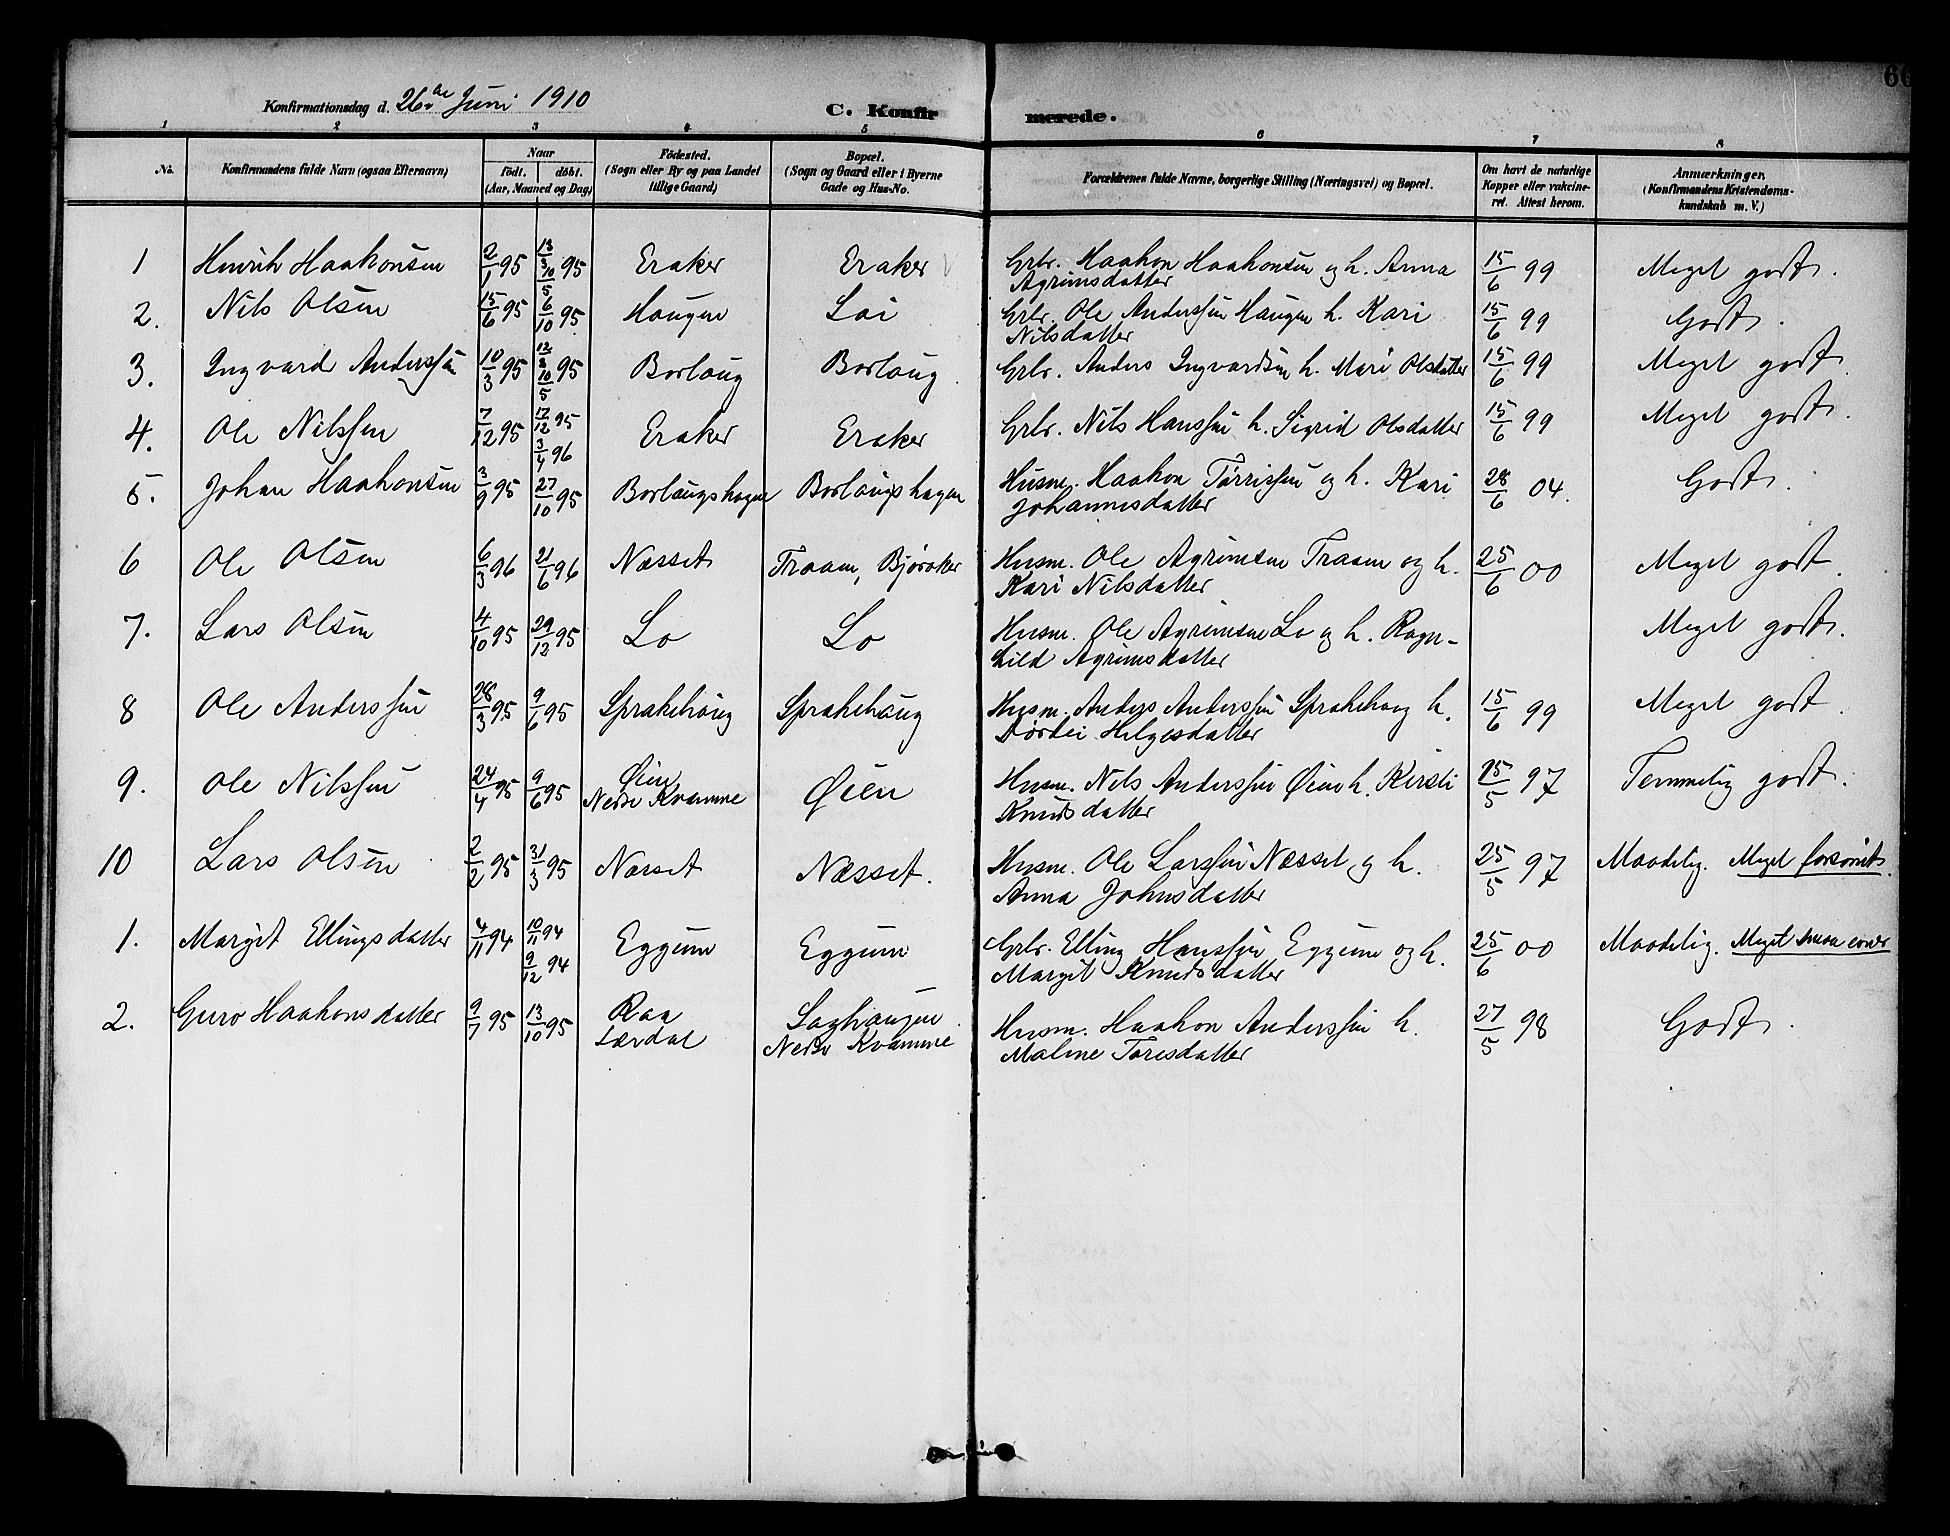 Konfirmationsdag d. 26de Juni 1910
C. Konfirmerede.
60
1 2 3 4 5 6 7 8
No. Konfirmandens fulde Navn (ogsaa Efternavn) Naar Födt. döbt. (Aar, Maaned og Dag) Födested. (Sogn eller By og paa Landet tillige Gaard) Bopæl. (Sogn og Gaard eller i Byerne Gade og Hus-No. Forældrenes fulde Navne, borgerlige Stilling (Næringsvei) og Bopæl. Om havt de naturlige Kopper eller vakcineret. Attest herom. Anmærkninger. (Konfirmandens Kristendomskundskab m. V.)
1 Henrik Haakonsen 2/1 95 13/3 10/5 95 Eraker Eraker Grbr. Haakon Haakonsen og h. Anna 15/6 99 Meget godt.
Agrimsdatter
2. Nils Olsen 15/6 95 6/10 95 Haugen Loi Grbr. Ole Anderssen Haugen h. Kari 15/6 99 Godt.
Nilsdatter
3. Ingvard Anderssen 10/3 95 12/3 10/5 95 Borlaug Borlaug. Grbr. Anders Ingvardsen h. Mari Olsdatter 15/6 99 Meget godt.
4. Ole Nilssen 7/12 95 17/12 95 3/4 96 Eraker Eraker Grbr. Nils Hanssen h. Sigrid Olsdatter 15/6 99 Meget godt.
5. Johan Haakonsen 3/9 95 27/10 95 Borlaugshagen Borlaugshagen Husm. Haakon Tørrissen og h. Kari 28/6 04. Godt.
Johannesdatter
6 Ole Olsen 6/3 96 21/6 96 Næsset Traam, Bjøraker Husm. Ole Agrimsen Traam og h. 25/6 00 Meget godt.
Kari Nilsdatter
7. Lars Olsen 4/10 95 29/12 95 Lo Lo Husm. Ole Agrimsen Lo og h. Ragn-
hild Agrimsdatter Meget godt.
8 Ole Anderssen 28/3 95 9/6 95 Sprakehaug Sprakehaug Husm. Anders Anderssen Sprakehaug h. 15/6 99 Meget godt.
Dørdei Helgesdatter
9. Ole Nilssen 24/4 95 9/6 95 Øien Nedre Kvamme Øien Husm. Nils Anderssen Øien h. Kirsti 25/5 97 Temmelig godt.
Knudsdatter
10 Lars Olsen 2/2 95 31/3 95 Næsset Næsset. Husm. Ole Larssen Næsset og h. 25/5 97 Maadelig. Meget forsømt.
Anna Johnsdatter
1. Margit Ellingsdatter 4/11 94 10/11 94 9/12 94 Eggum Eggum Grbr. Elling Hanssen Eggum og h. 25/6 00 Maadelig. Meget smaa evner
Margit Knudsdatter
2. Guro Haakonsdatter 9/7 95 13/10 95 Raa Lærdal Saghaugen Nedre Kvamme Husm. Haakon Anderssen h. 27/5 98 Godt.
Malene Toresdatter